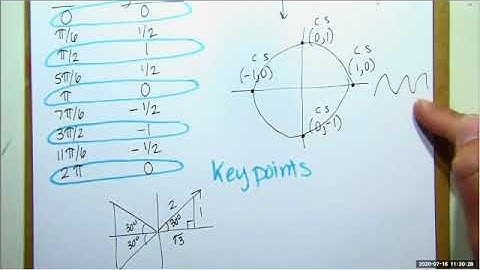 0 0
π/6 1/2
π/2 1
5π/6 1/2
π 0
7π/6 -1/2
3π/2 -1
11π/6 -1/2
2π 0
c s
(0,1)
c s
(-1,0)
c s
(1,0)
c s
(0,-1)
Key points
2
30° 30° 1
30° √3
2020-07-15 11:30:28